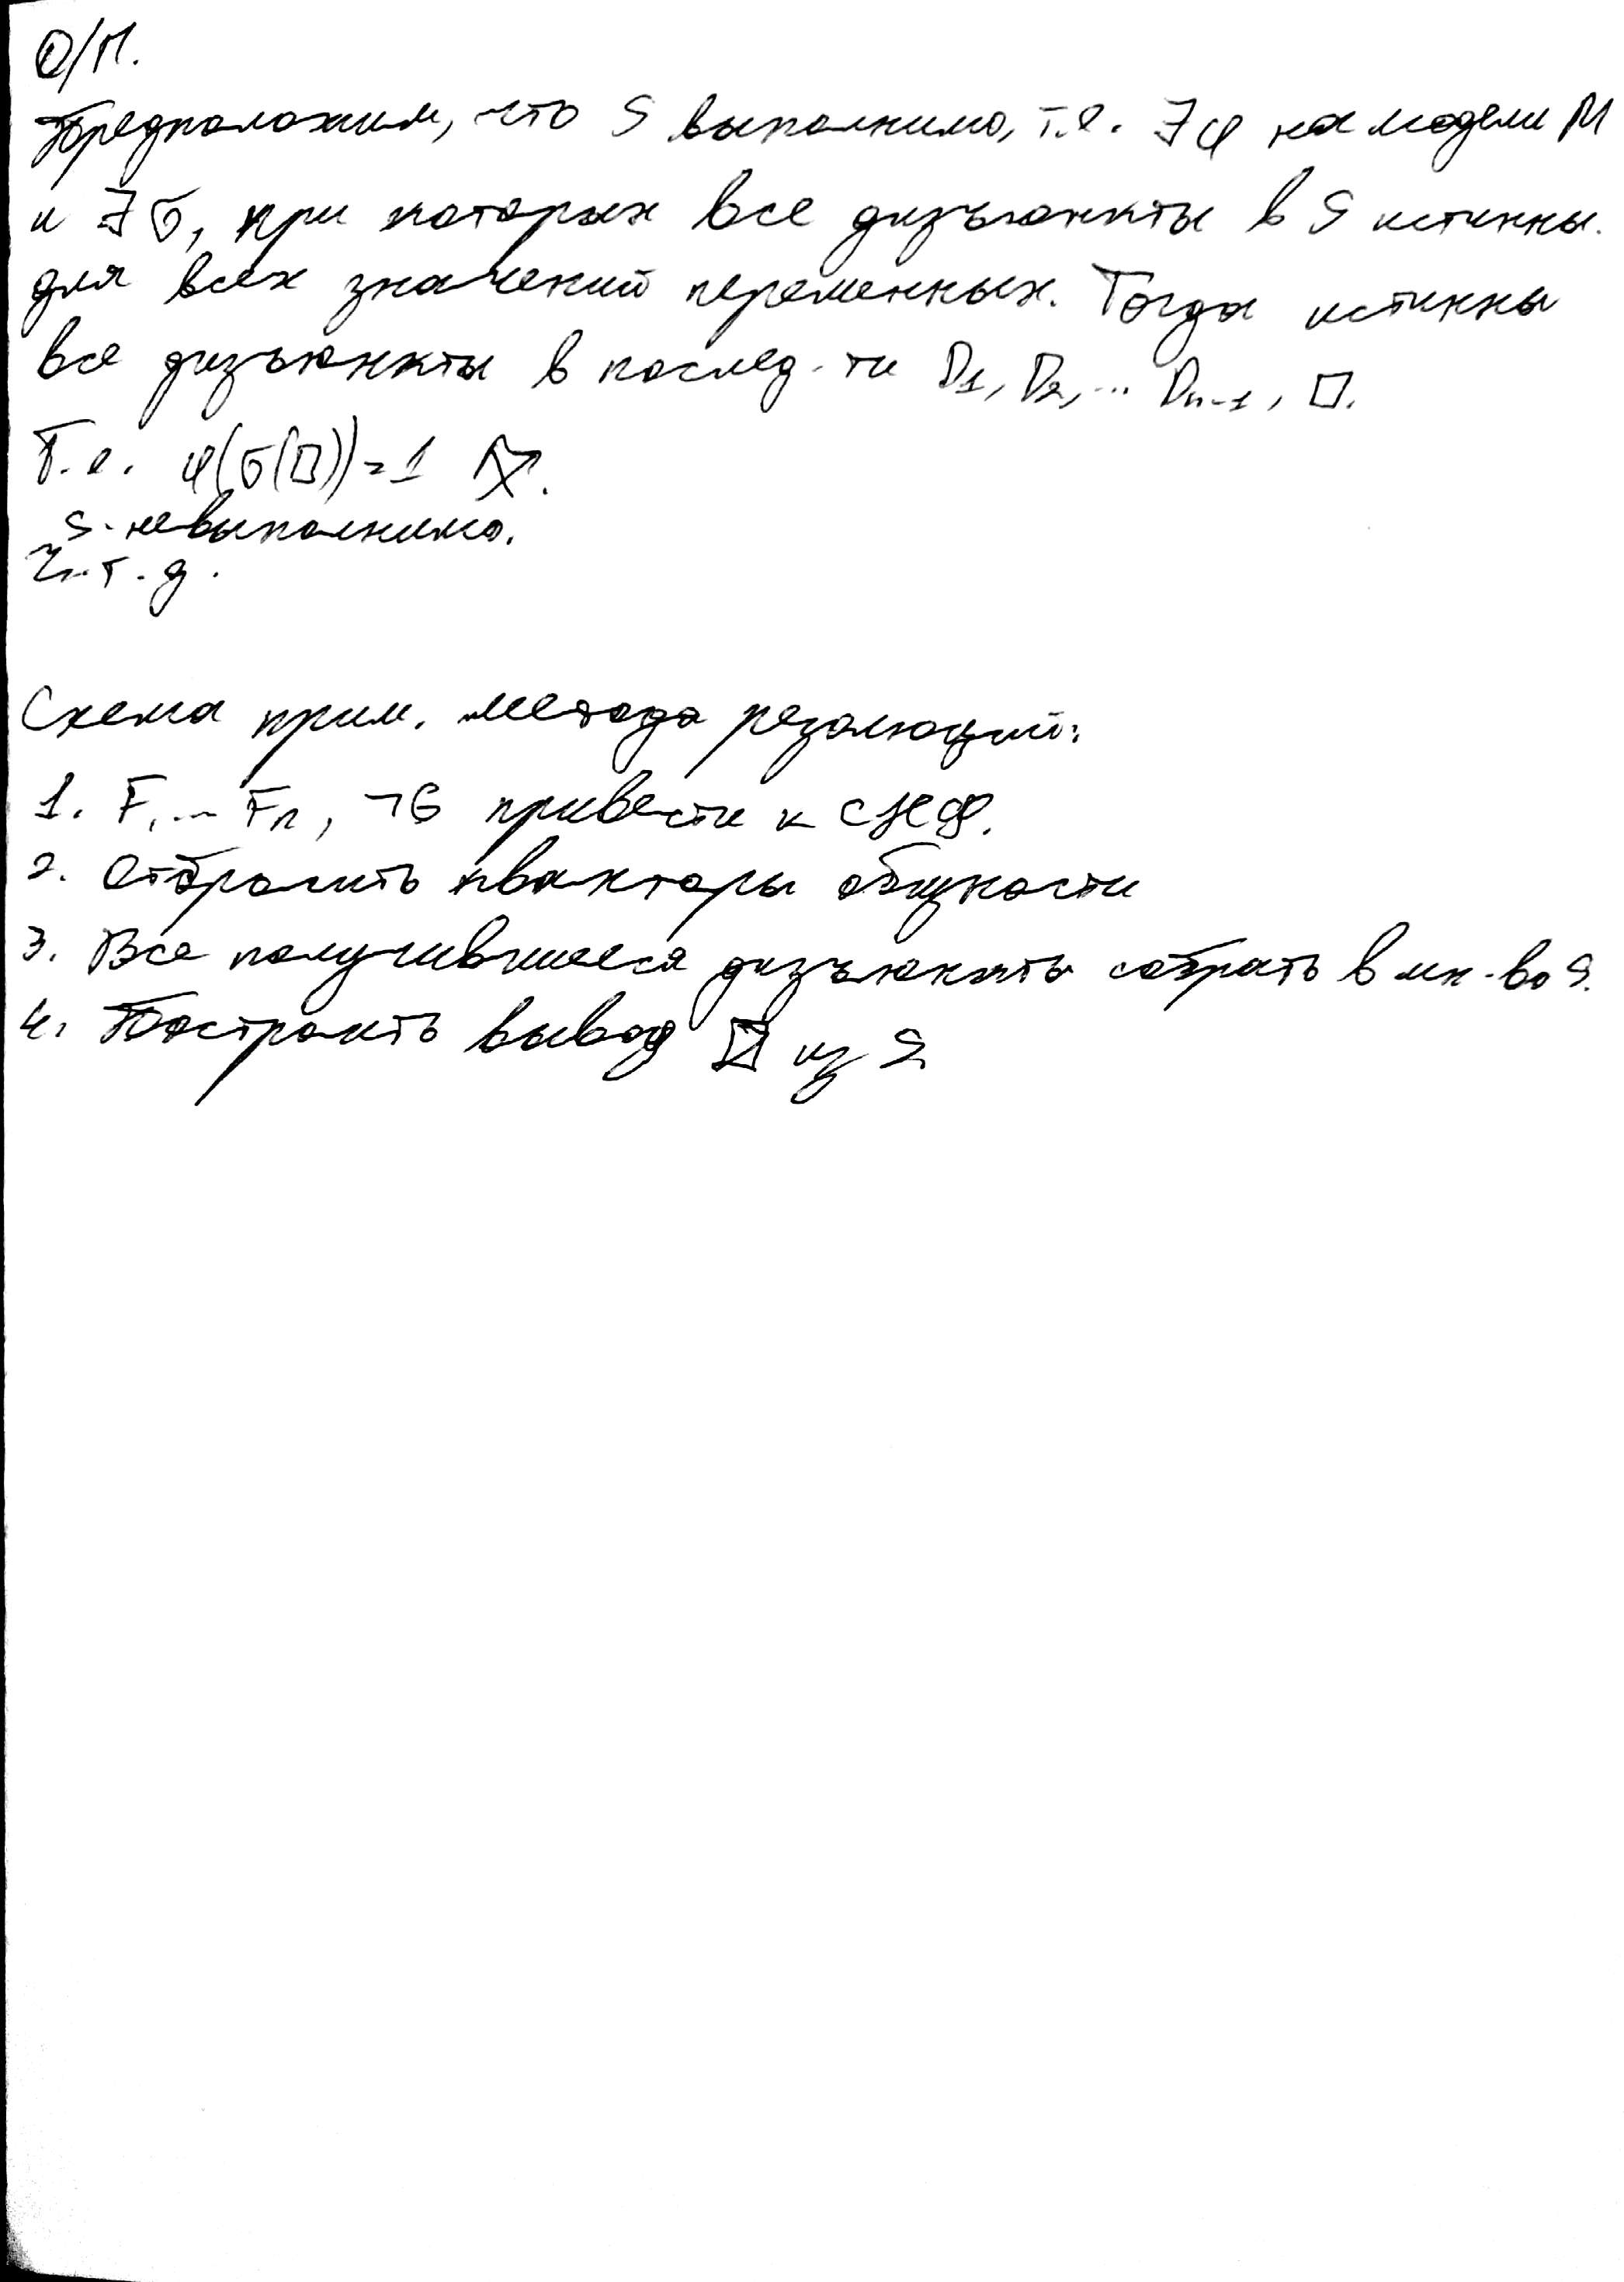 О/П.
Предположим, что S выполнимо, т.е. ∃φ на модели M
и ∃σ, при которых все дизъюнкты в S истинны.
для всех значений переменных. Тогда истинны
все дизъюнкты в послед-ти D₁, D₂, ... Dₙ₋₁, □.
Т.е. φ(σ(□))=1
S - невыполнимо.
Ч.т.д.
Схема прим. метода резолюций:
1. F₁ ... Fn, ¬G привести к СНФ.
2. Отбросить кванторы общности
3. Все получившиеся дизъюнкты собрать в мн-во S.
4. Построить вывод □ из S